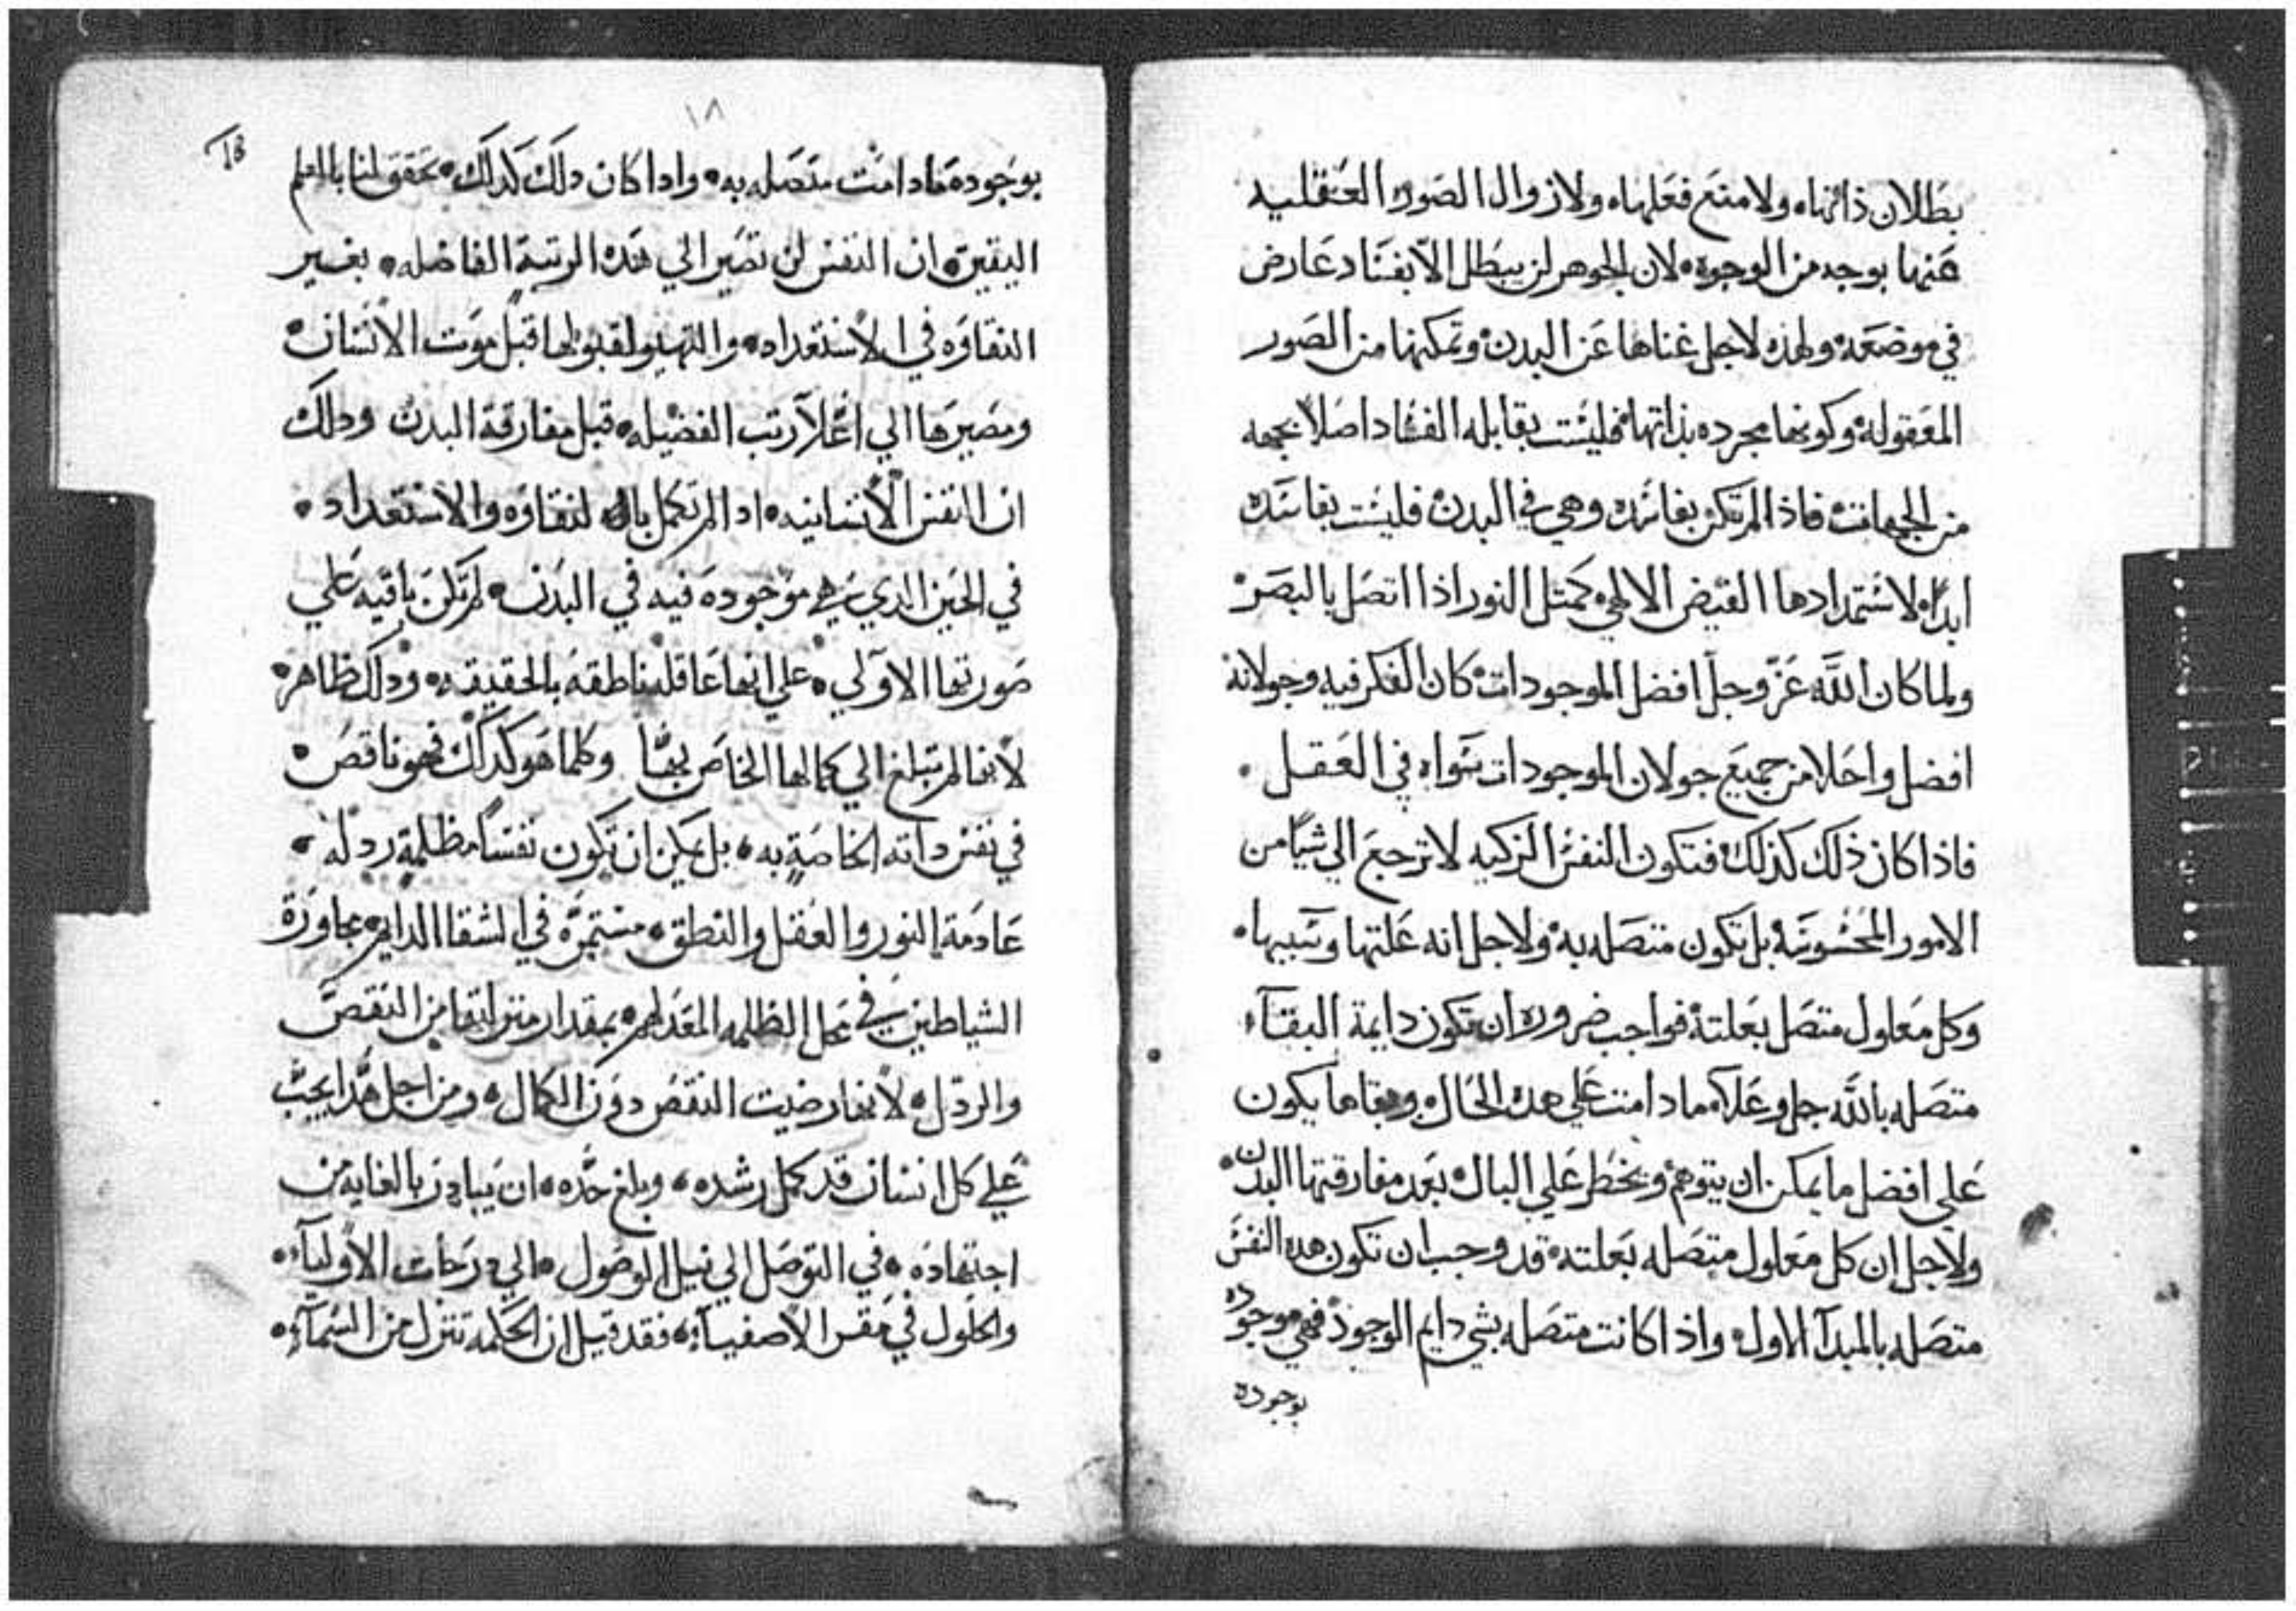 بطلان ذاتها ولا منع فعلها ولا زوال الصور العقليه
عنها بوجه من الوجوه لان الجوهر لن يبطل الا بفساد عارض
في موضعه ولهذه لاجل غناها عن البدن وتمكنها من الصور
المعقوله وكونها مجرده بذاتها فليست بقابله الفساد اصلا بجهه
من الجهات فاذا لم تكن بفاسده وهي في البدن فليست بفاسده
ابدًا لاستمدادها الفيض الالهي كمثل النور اذا اتصل بالبصر
ولما كان الله عز وجل افضل الموجودات كان الفكر فيه وجولانه
افضل واحلا من جميع جولان الموجودات سواه في العقل
فاذا كان ذلك كذلك فتكون النفس الزكيه لا ترجع الي شيًا من
الامور المحسوسة بل تكون متصله به ولاجل انه علتها وسببها
وكل معلول متصل بعلته فواجب ضروره ان تكون دايمة البقآء
متصله بالله جل وعلا ما دامت علي هده الحال وبقاها يكون
علي افضل ما يمكن ان يتوهم ويخطر علي البال بعد مفارقتها البدن
ولاجل ان كل معلول متصله بعلته قد وجب ان تكون هده النفس
متصله بالمبدآ الاول واذا كانت متصله بشي دايم الوجود فهي موجوده
بوجوده
١٨
18
بوجوده مادامت متصله به وادا كان دلك كدلك تحقق لنا بالعلم
اليقين ان النفس لن تصير الي هده الرتبة الفاضله بغير
النقاوه في الاستعداد والتهيو لقبولها قبل موت الانسان
ومصيرها الي اعلا رتب الفضيله قبل مفارقة البدن ودلك
ان النفس الانسانيه ادا لم تكمل بال لنقاوه والاستعداد
في الحين الدي هي موجوده فيه في البدن لم تكن باقيه علي
صورتها الاولي علي انها عاقله ناطقه بالحقيقه ودلك ظاهر
لانها لم تبلغ الي كمالها الخاص بها وكلما هو كدلك فهو ناقص
في نفس داته الخاصة به بل يمكن ان تكون نفسًا مظلمة ردله
عادمة النور والعقل والنطق مستمرة في الشقا الدايم مجاورة
الشياطين في محل الظلمه المعد لهم بمقدار منزلتها من النقص
والردل لانها رضيت النقص دون الكمال ومن اجل هدا يجب
علي كل انسان قد كمل رشده وبلغ حده ان يبادر بالغايه من
اجتهاده في التوصل الي نيل الوصول الي درجات الاوليآء
والحلول في مقر الاصفيآء فقد قيل ان الحكمه تنزل من السمآء